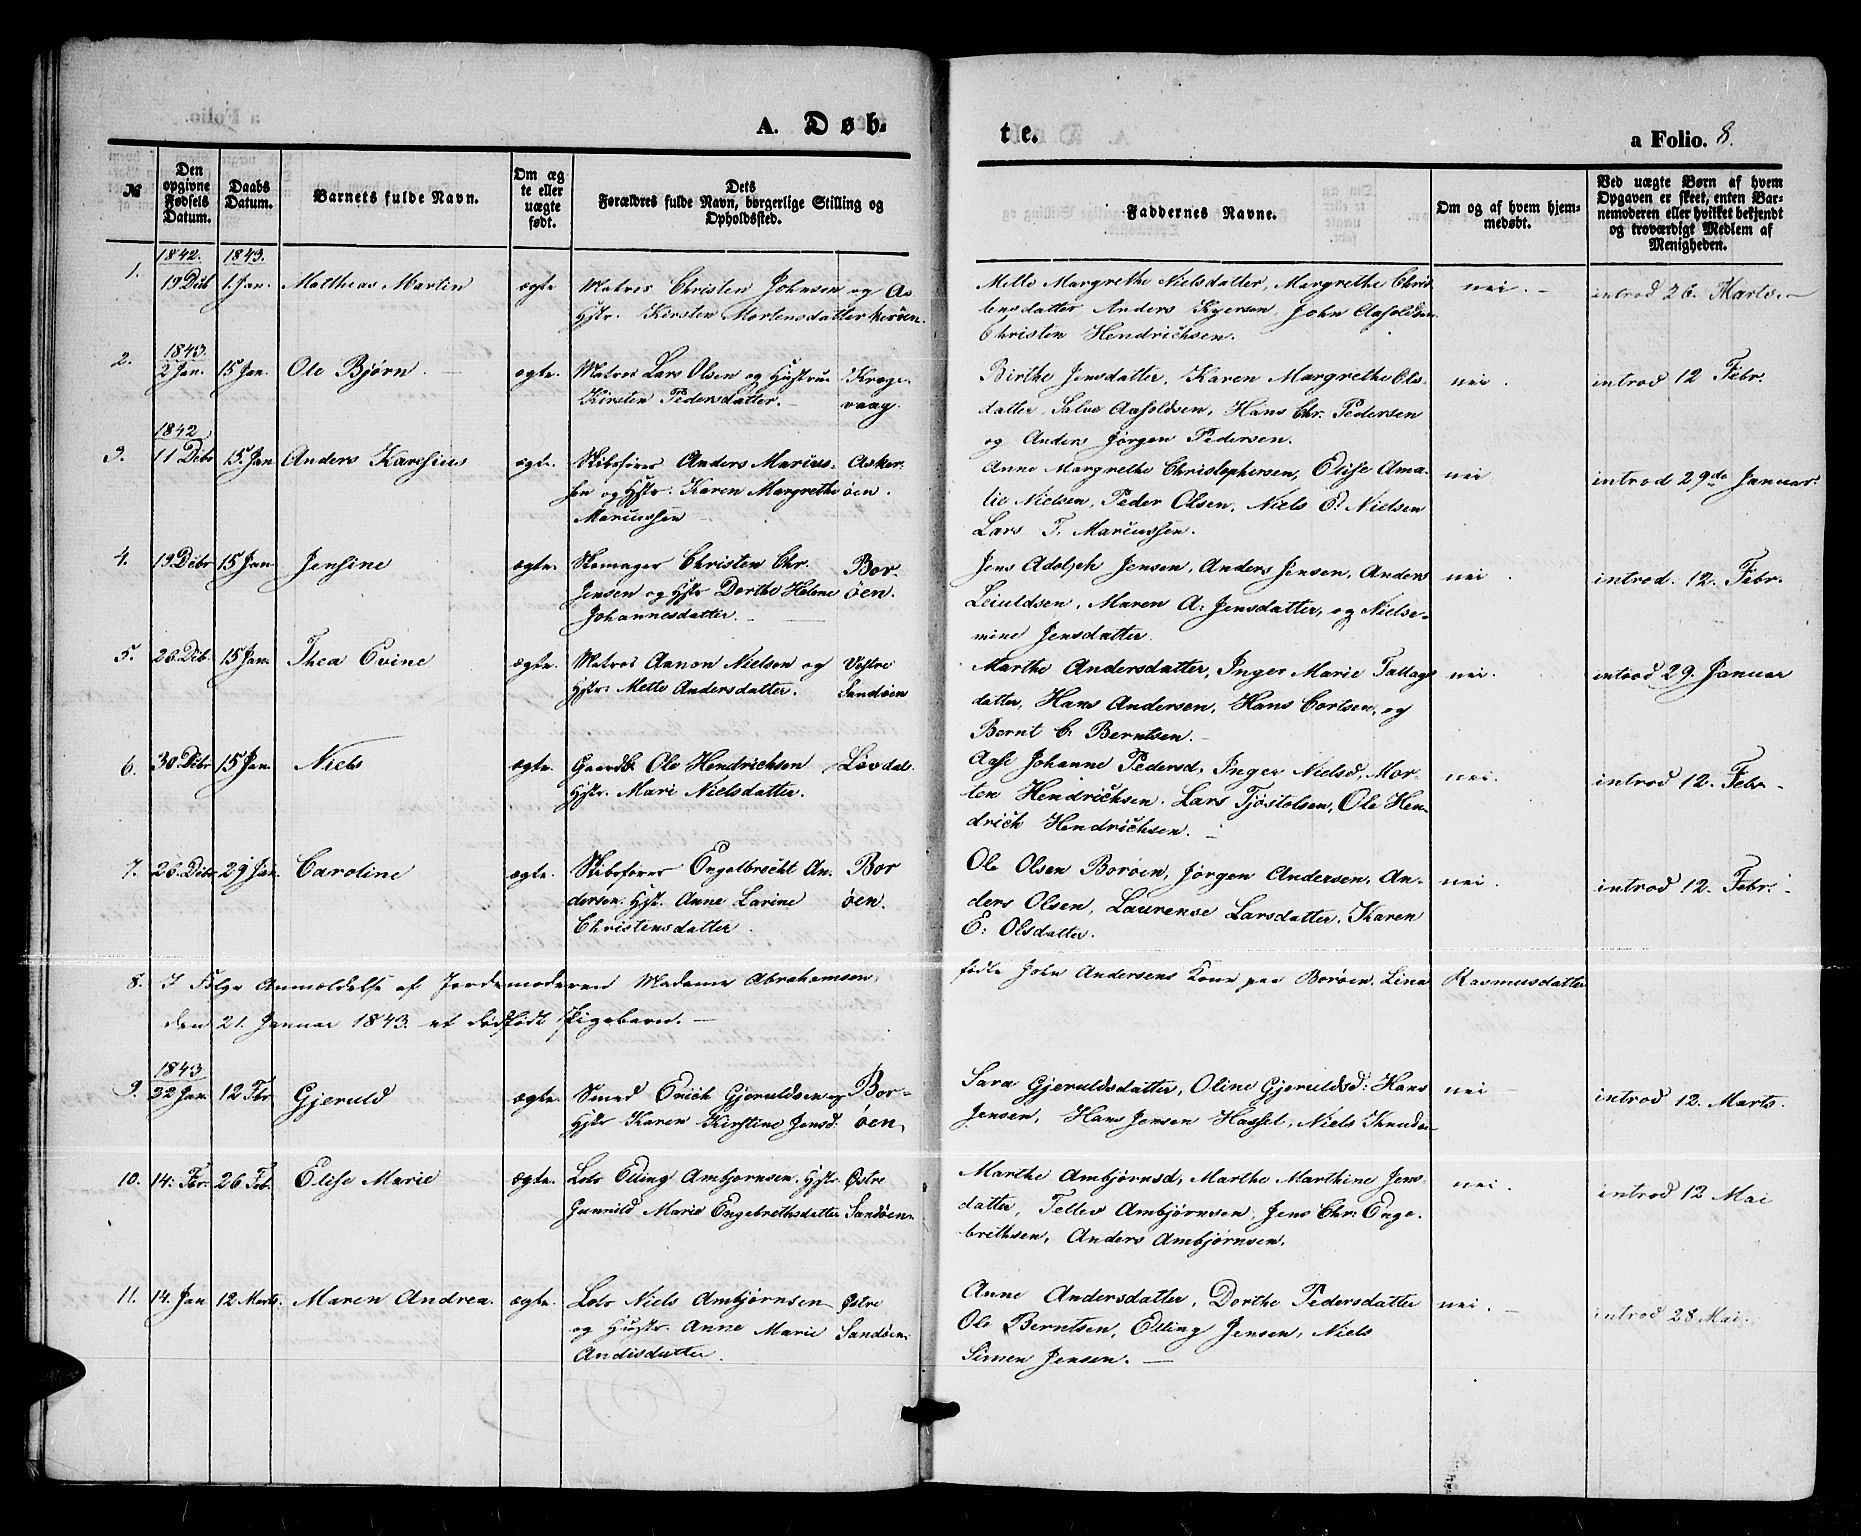 A. Døb-
te.
a Folio. 8.
№
Den opgivne Fødsels Datum.
Daabs Datum.
Barnets fulde Navn.
Om ægte eller uægte født.
Dets Forældres fulde Navn, borgerlige Stilling og Opholdssted.
Faddernes Navne.
Om og af hvem hjemmedøbt.
Ved uægte Børn af hvem Opgaven er skeet, enten Barnemoderen eller hvilket bekjendt og troværdigt Medlem af Menigheden.
1842. 1843.
1. 19 Debr 1. Jan. Matthias Martin ægte Matros Christen Johnsen og As-
Hstr. Kirsten Mortensdatter kerøen.
Mette Margrethe Nielsdatter, Margrethe Chris
tensdatter Anders John Aasoldsen
Christen Hendrichsen.
nei. introd 26. Marts.
1843.
2. 2 Jan. 15 Jan. Ole Bjørn. ægte. Matros Lars Olsen og Hustrue Krage-
Kirsten Pedersdatter. vaag.
Birthe Jensdatter, Karen Margrethe Ols-
datter, Salve Aasoldsen, Hans Chr. Pedersen
og Anders Jørgen Pedersen.
nei. introd 12 Febr.
1842
3. 11 Debr 15. Jan Anders Karesius ægte. Skibsfører Anders Marius- Asker-
sen og Hstr: Karen Margrethe øen.
Mariussen
Anne Margrethe Christophersen, Elise Ama-
lie Nielsen, Peder Olsen, Niels E: Nielsen
Lars T. Mariussen.
nei introd 29de Januar.
4. 19 Debr 15 Jan Jensine ægte. Skomager Christen Chr. Bor-
Jensen og Hstr Dorthe Helene øen.
Johannesdatter.
Jens Adolph Jensen, Anders Jensen, Anders
Leiuldsen, Maren A: Jensdatter, og Nielse-
mine Jensdatter.
nei. introd. 12. Febr.
5. 26. Deb. 15 Jan. Thea Evine ægte. Matros Aanon Nielsen og Vestre
Hstr: Mette Andersdatter. Sandøen
Marthe Andersdatter, Inger Marie Tallags
datter, Hans Andersen, Hans Cortsen, og
Bernt C. Berntsen.
nei. introd 29. Januar
6. 30 Debr 15 Jan. Niels ægte. Gaardb. Ole Hendrichsen Løvdal.
Hstr. Mari Nielsdatter.
Aase Johanne Pedersd, Inger Nielsd, Mor-
ten Hendrichsen. Lars Tjøstolsen, Ole Hen-
drich Hendrichsen.
nei. introd 12. Febr.
7. 26. Debr 29 Jan. Caroline ægte. Skibsfører Engelbrecht An- Bor
dersen. Hst. Anne Larine øen.
Christensdatter.
Ole Olsen Borøen, Jørgen Andersen, An-
ders Olsen, Laurense Larsdatter, Karen
E: Olsdatter.
nei. introd 12. Febr.
8. I Følge Anmeldelse af Jordemoderen Madame Abrahamsen, fødte John Andersens Kone paa Borøen, Lina Rasmusdatter
den 21. Januar 1843. et dødfødt Pigebarn.
1843
9. 22 Jan. 12 Fbr Gjeruld ægte. Smed Erich Gjeruldsen og Bor-
Hstr Karen Kirstine Jensd. øen.
Sara Gjeruldsdatter, Oline Gjeruldsd: Hans
Jensen, Hans Jensen Hassel, Niels Knudsen
nei introd 12. Marts.
10. 14. Fbr. 26 Feb. Elise Marie ægte. Lods Elling Ambjørnsen. Hstr Østre
Gunnild Marie Engebrethsdatter Sandøen
Marthe Ambjørnsd, Marthe Marthine Jens
datter, Tellev Ambjørnsen, Jens Chr: Enge-
brethsen, Anders Ambjørnsen.
nei. introd 12 Mai
11. 14. Jan 12 Marts. Maren Andrea. ægte. Lods Niels Ambjørnsen Østre
og Hustr. Anne Marie Sandøen.
Andisdatter.
Anne Andersdatter, Dorthe Pedersdatter
Ole Berntsen, Elling Jensen, Niels
Simen Jensen.
nei. introd 28 Mai.